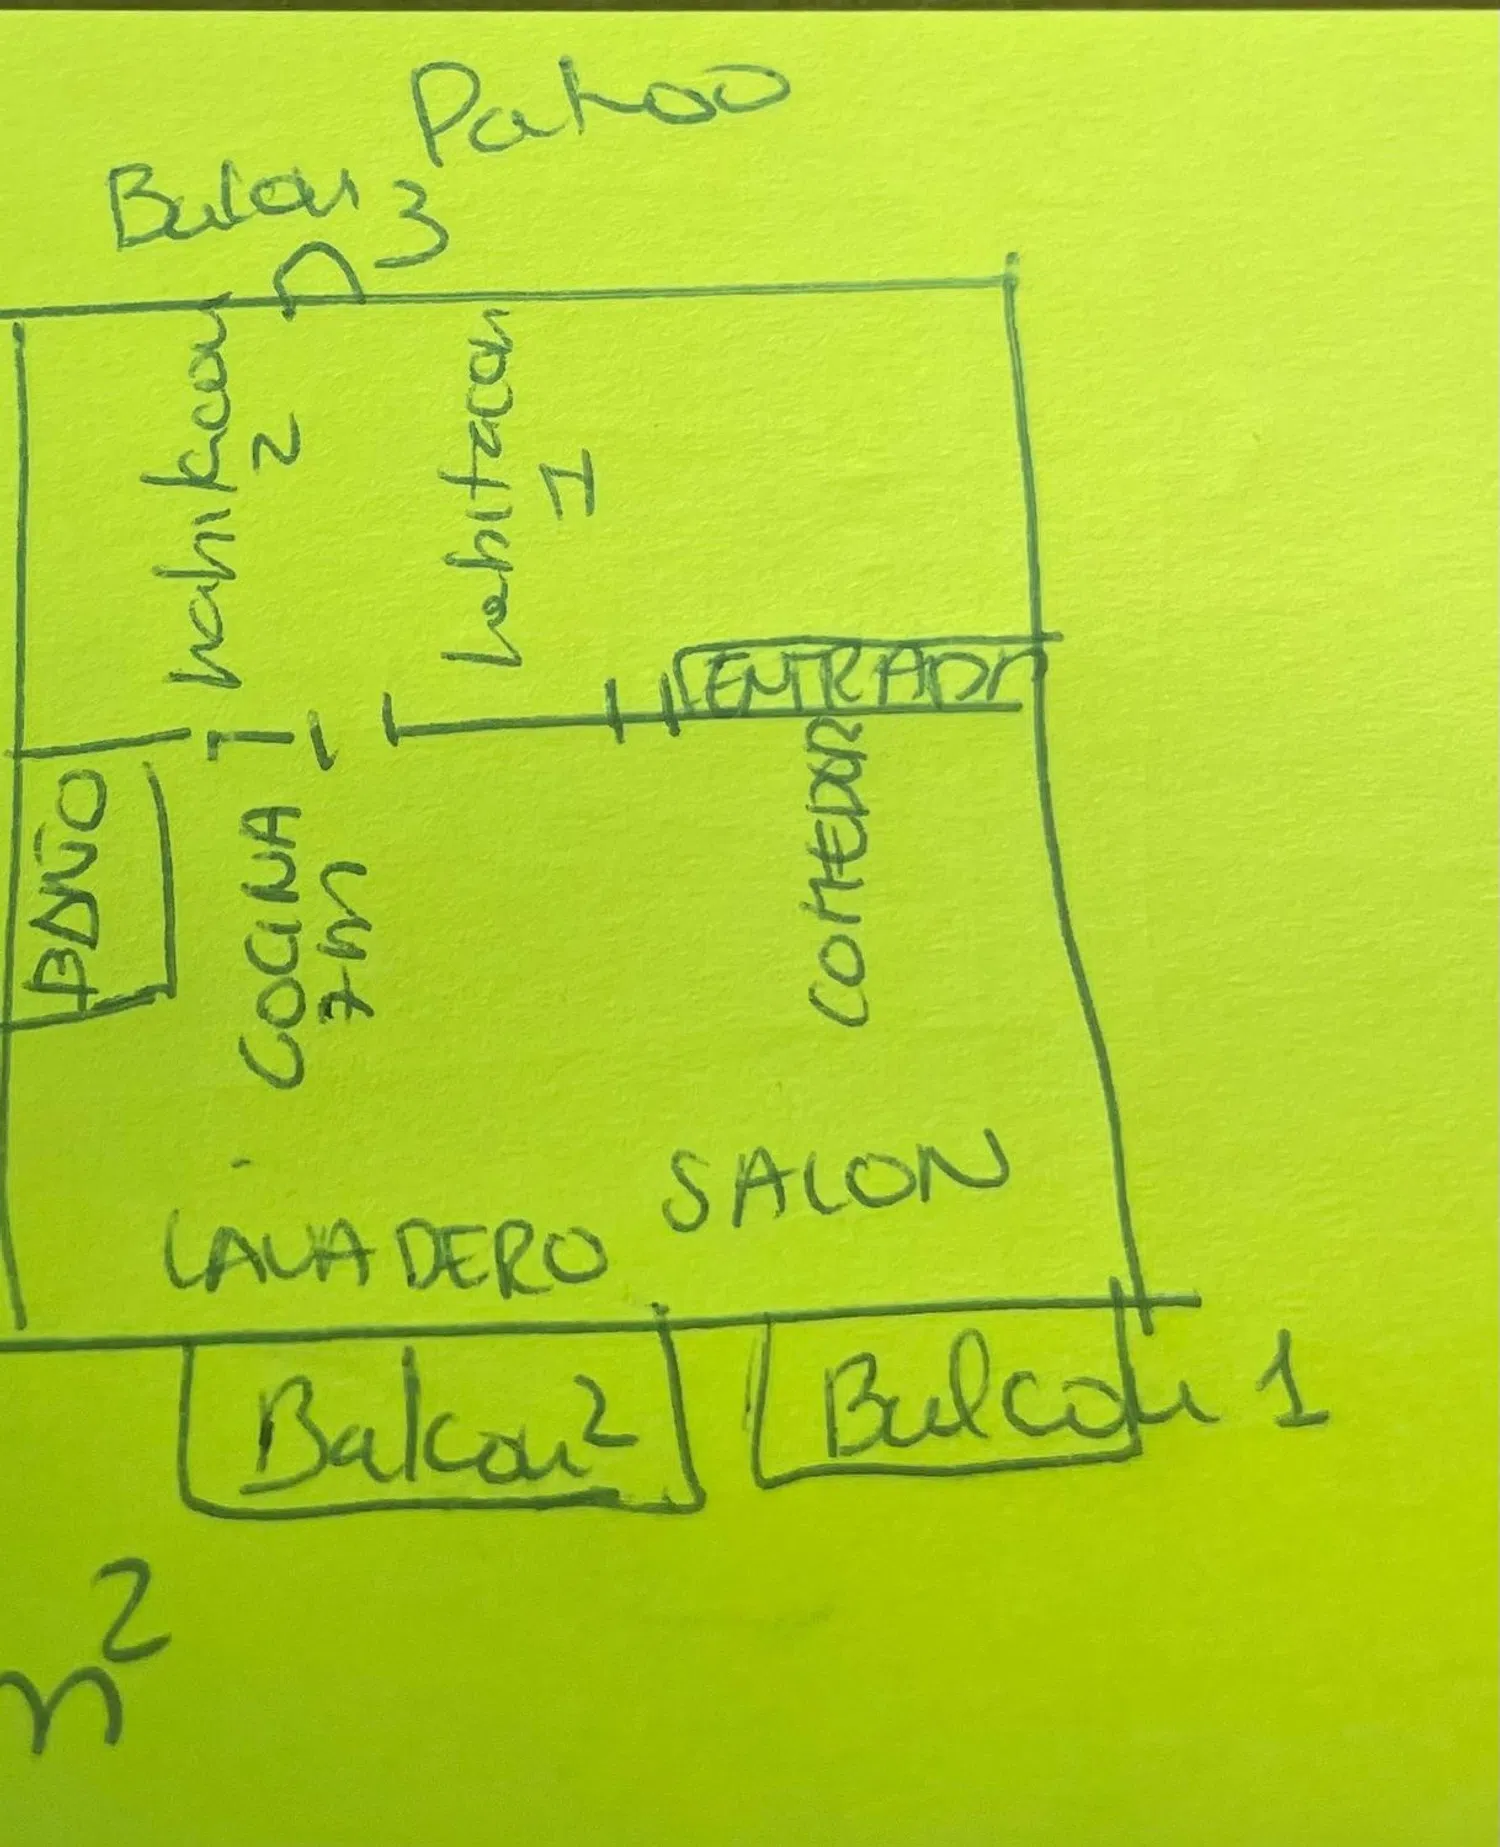 Patio
Balcon 3
habitacon
2
habitacon
1
ENTRADA
BAÑO
COCINA
7m
COMEDOR
SALON
LAVADERO
Balcon 2
Balcon 1
m²